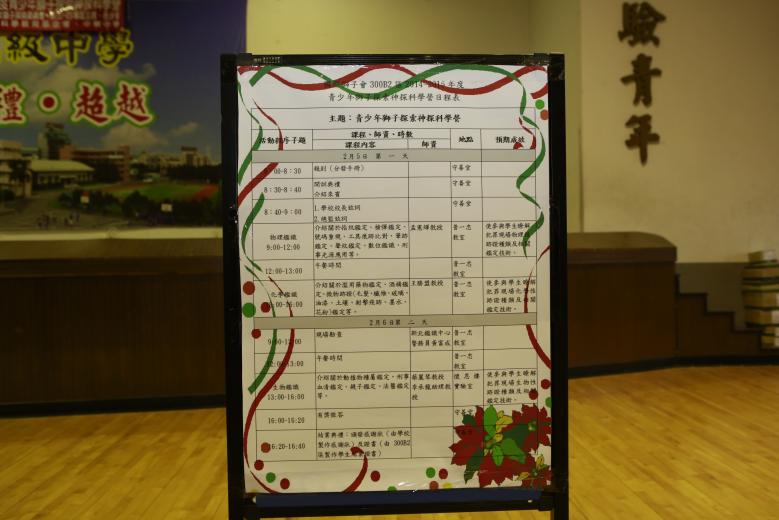 級中學
禮•超越
驗青年
獅子會 300B2 區 2014-2015 年度
青少年獅子探索神探科學營日程表
主題：青少年獅子探索神探科學營
活動程序子題
課程、師資、時數
課程內容
師資
地點
預期成效
2月5日 第 一 天
8:00-8:30
報到（分發手冊）
守善堂
8：30-8：40
開訓典禮
介紹來賓
守善堂
8：40-9：00
1.學校校長致詞
2.總監致詞
守善堂
物理鑑識
9:00-12:00
介紹關於指紋鑑定、槍彈鑑定、
號碼重現、工具痕跡比對、筆跡
鑑定、聲紋鑑定、數位鑑識、刑
事光源應用等。
孟憲輝教授
普一忠
教室
使參與學生瞭解
犯罪現場物理性
跡證種類及相關
鑑定技術。
12:00-13:00
午餐時間
普一忠
教室
化學鑑識
介紹關於濫用藥物鑑定、酒精鑑
定、微物跡證(毛髮、纖維、玻璃、
油漆、土壤、射擊殘跡、墨水、
花粉)鑑定等。
王勝盟教授
普一忠
教室
使參與學生瞭解
犯罪現場化學性
跡證種類及相關
鑑定技術。
2月6日第 二 天
9:00-12:00
現場勘查
新北鑑識中心
警務員黃富成
普一忠
教室
12:00-13:00
午餐時間
普一忠
教室
生物鑑識
13:00-16:00
介紹關於動植物種屬鑑定、刑事
血清鑑定、親子鑑定、法醫鑑定
等。
蔡麗琴教授
李承龍助理教
授
懷恩樓
實驗室
使參與學生瞭解
犯罪現場生物性
跡證種類及相關
鑑定技術。
16:00-16:20
有獎徵答
守善堂
16:20-16:40
結業典禮：頒發感謝狀（由學校
製作感謝狀）及證書（由 300B2
區製作學生結業證書）
守善堂